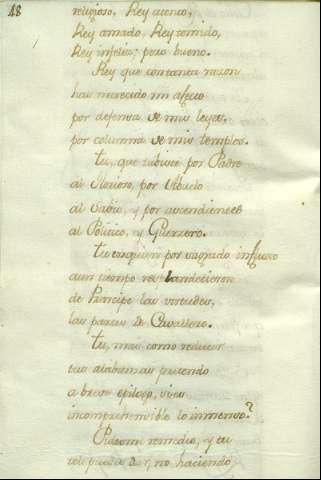 18
religioso, Rey atento,
Rey amado, Rey temido,
Rey infeliz; pero bueno.
Rey que con tanta razon
has merecido mi afecto
por defensa de mis leyes,
por columna de mis templos.
Tu, que tubiste por Padre
al Glorioso, por Abuelo
al Sabio, y por ascendientes
al Politico, y Guerrero.
Tu en quien por sagrado influxo
a un tiempo resplandecieron
de Principe las virtudes,
las partes de Cavallero.
Tu, mas como reducir
tus alabanzas pretendo
a breve epilogo, si es
incomprehensible lo inmenso?
Pideme remedio, y tu
solo puedes dar, no haciendo